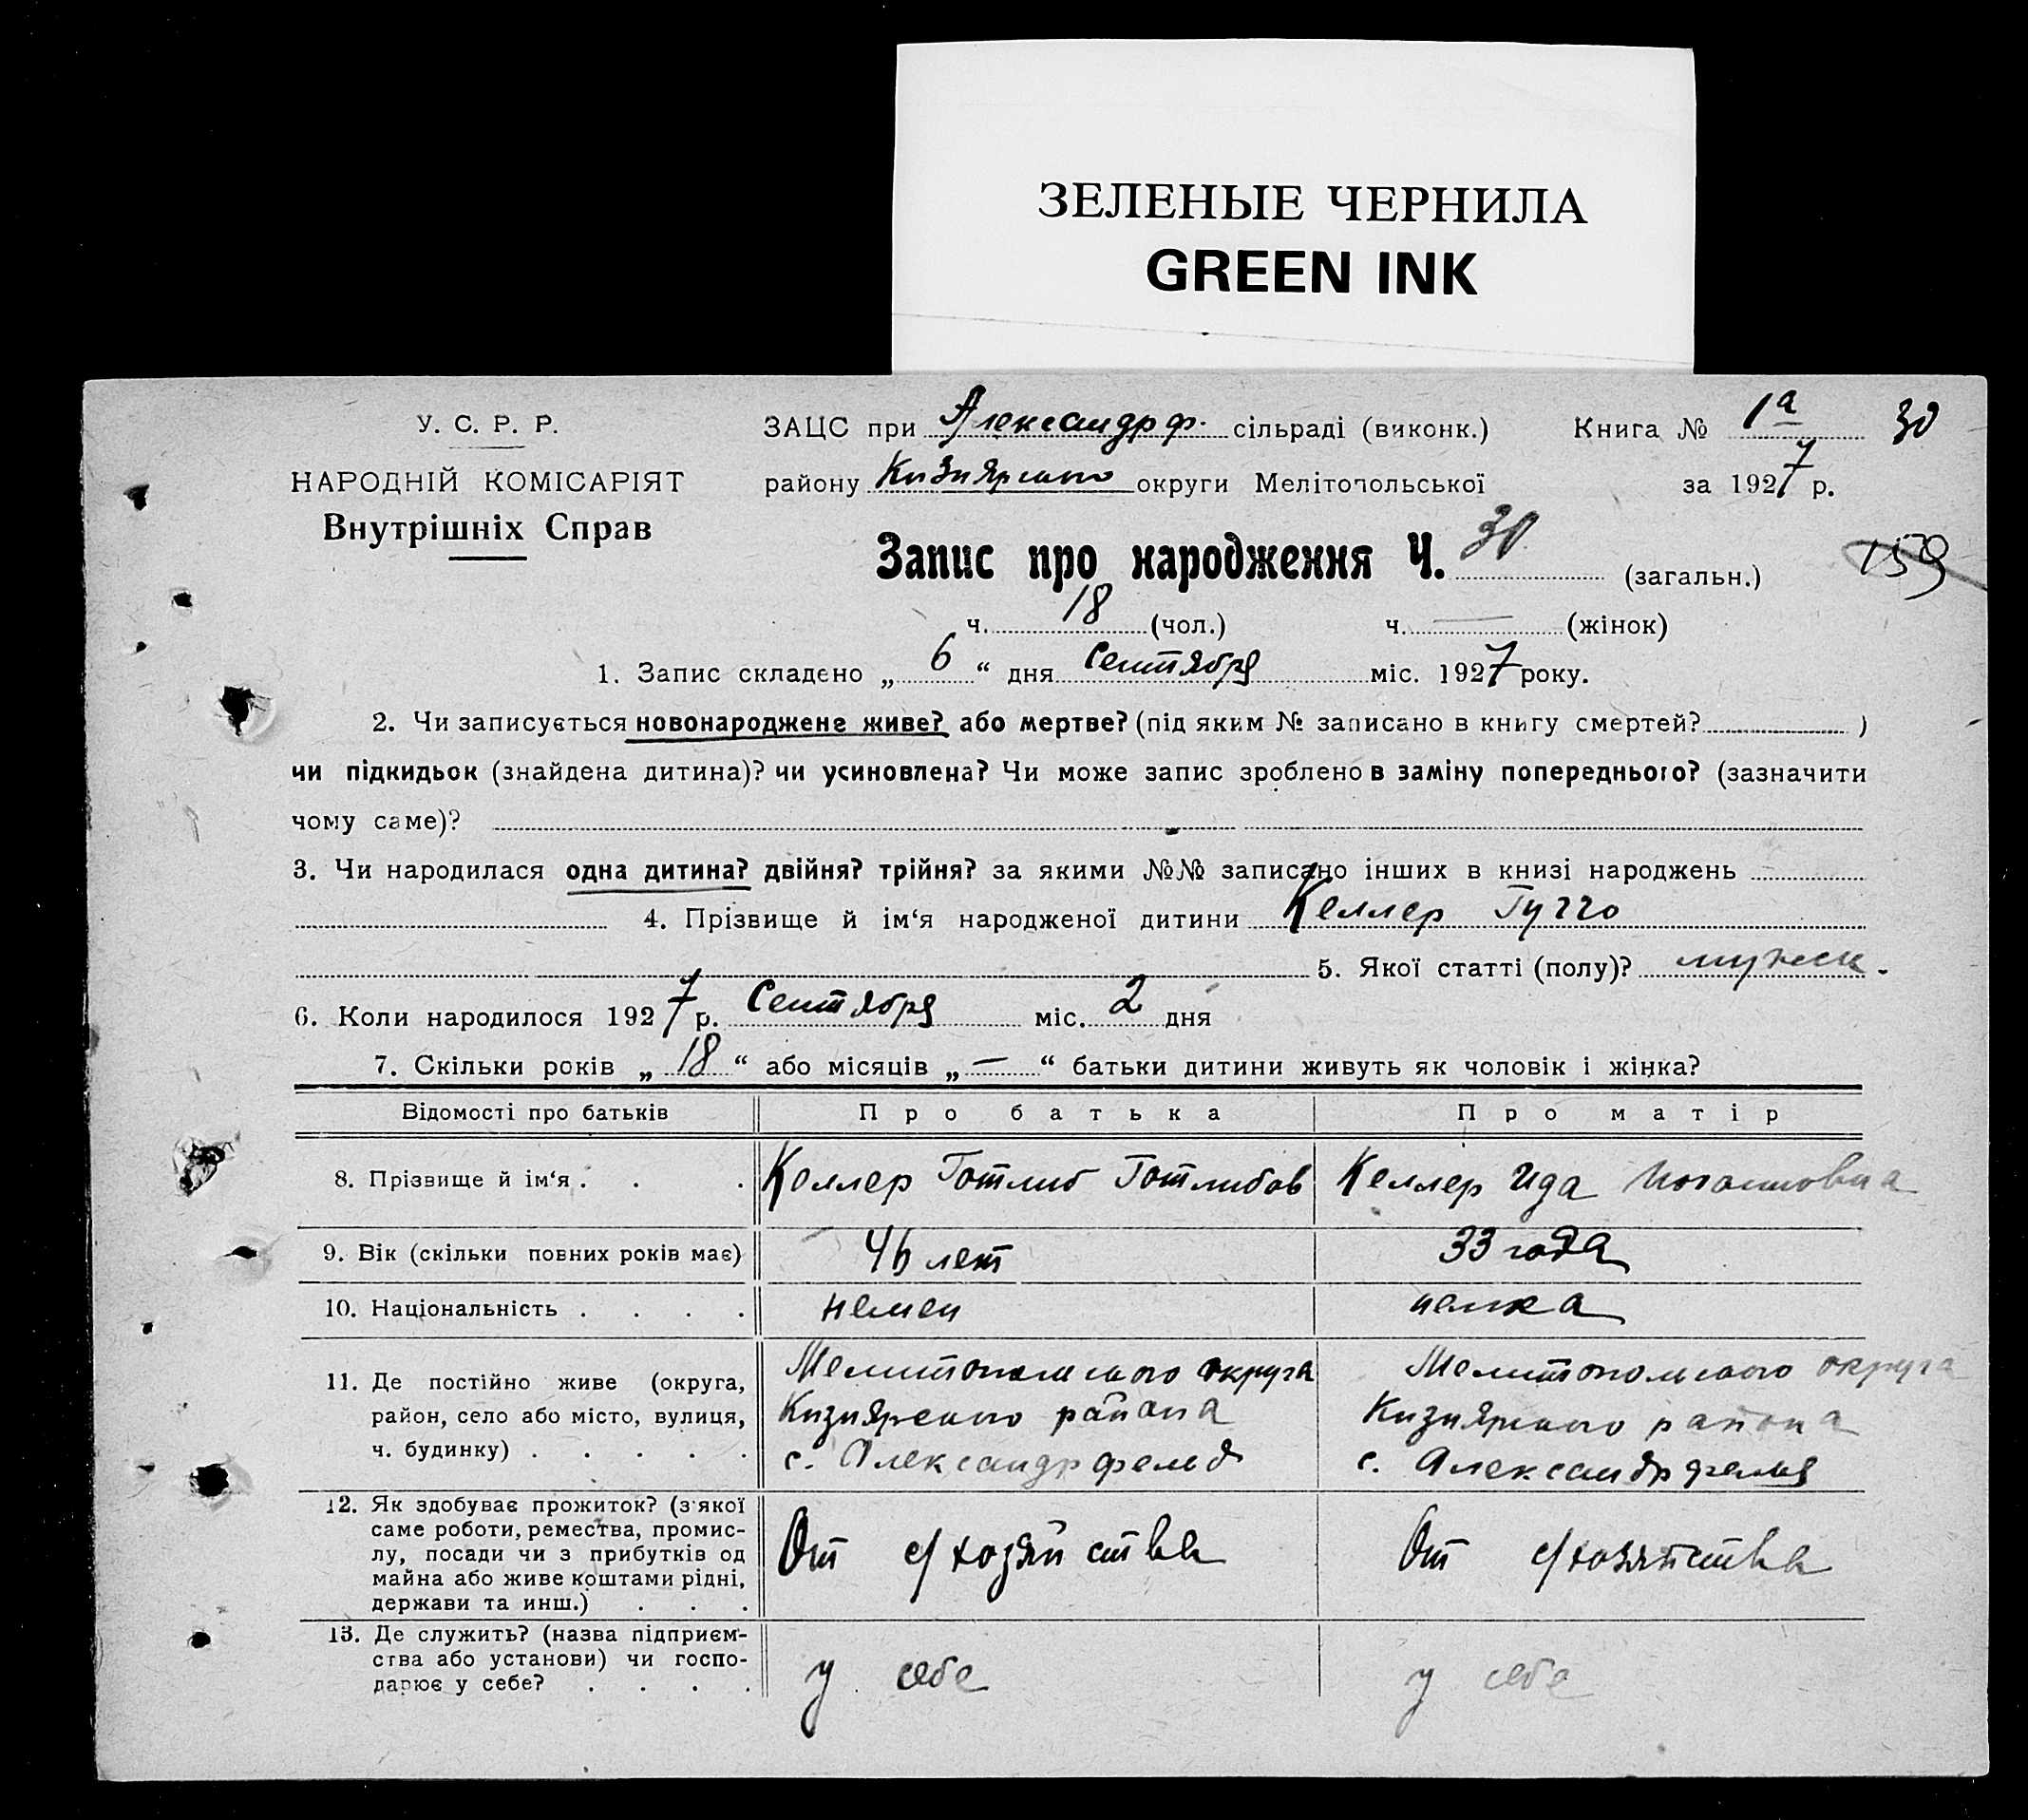 ЗЕЛЕНЫЕ ЧЕРНИЛА
GREEN INK
У. С. Р. Р.
НАРОДНІЙ КОМІСАРІЯТ
Внутрішніх Справ
ЗАЦС при Александрф. сільраді (виконк.) Книга № 1а 30
району Кизиярского округи Мелітопольської за 1927 р.
Запис про народження Ч. 30 (загальн.) 159
ч. 18 (чол.) ч. — (жінок)
1. Запис складено „ 6 “ дня Сентября міс. 1927 року.
2. Чи записується новонароджене живе? або мертве? (під яким № записано в книгу смертей? )
чи підкидьок (знайдена дитина)? чи усиновлена? Чи може запис зроблено в заміну попереднього? (зазначити
чому саме)?
3. Чи народилася одна дитина? двійня? трійня? за якими №№ записано інших в книзі народжень
4. Прізвище й ім‘я народженої дитини Келлер Гугго
5. Якої статті (полу)? мужск.
6. Коли народилося 1927 р. Сентября міс. 2 дня
7. Скільки років „ 18 “ або місяців „ — “ батьки дитини живуть як чоловік і жінка?
Відомості про батьків Про батька Про матір
8. Прізвище й ім‘я . . . Келлер Готлиб Готлибов Келлер Ида Иогановна
9. Вік (скільки повних років має) 46 лет 33 года
10. Національність . . . . немец немка
11. Де постійно живе (округа,
район, село або місто, вулиця,
ч. будинку) . . . . .
Мелитопольского округа
Кизиярского района
с. Александрфельд
Мелитопольского округа
Кизиярского района
с. Александрфельд
12. Як здобуває прожиток? (з якої
саме роботи, ремества, промис-
лу, посади чи з прибутків од
майна або живе коштами рідні,
держави та инш.) . . .
От с/хозяйства
От с/хозяйства
13. Де служить? (назва підприєм-
ства або установи) чи госпо-
дарює у себе? . . . .
у себе
у себе